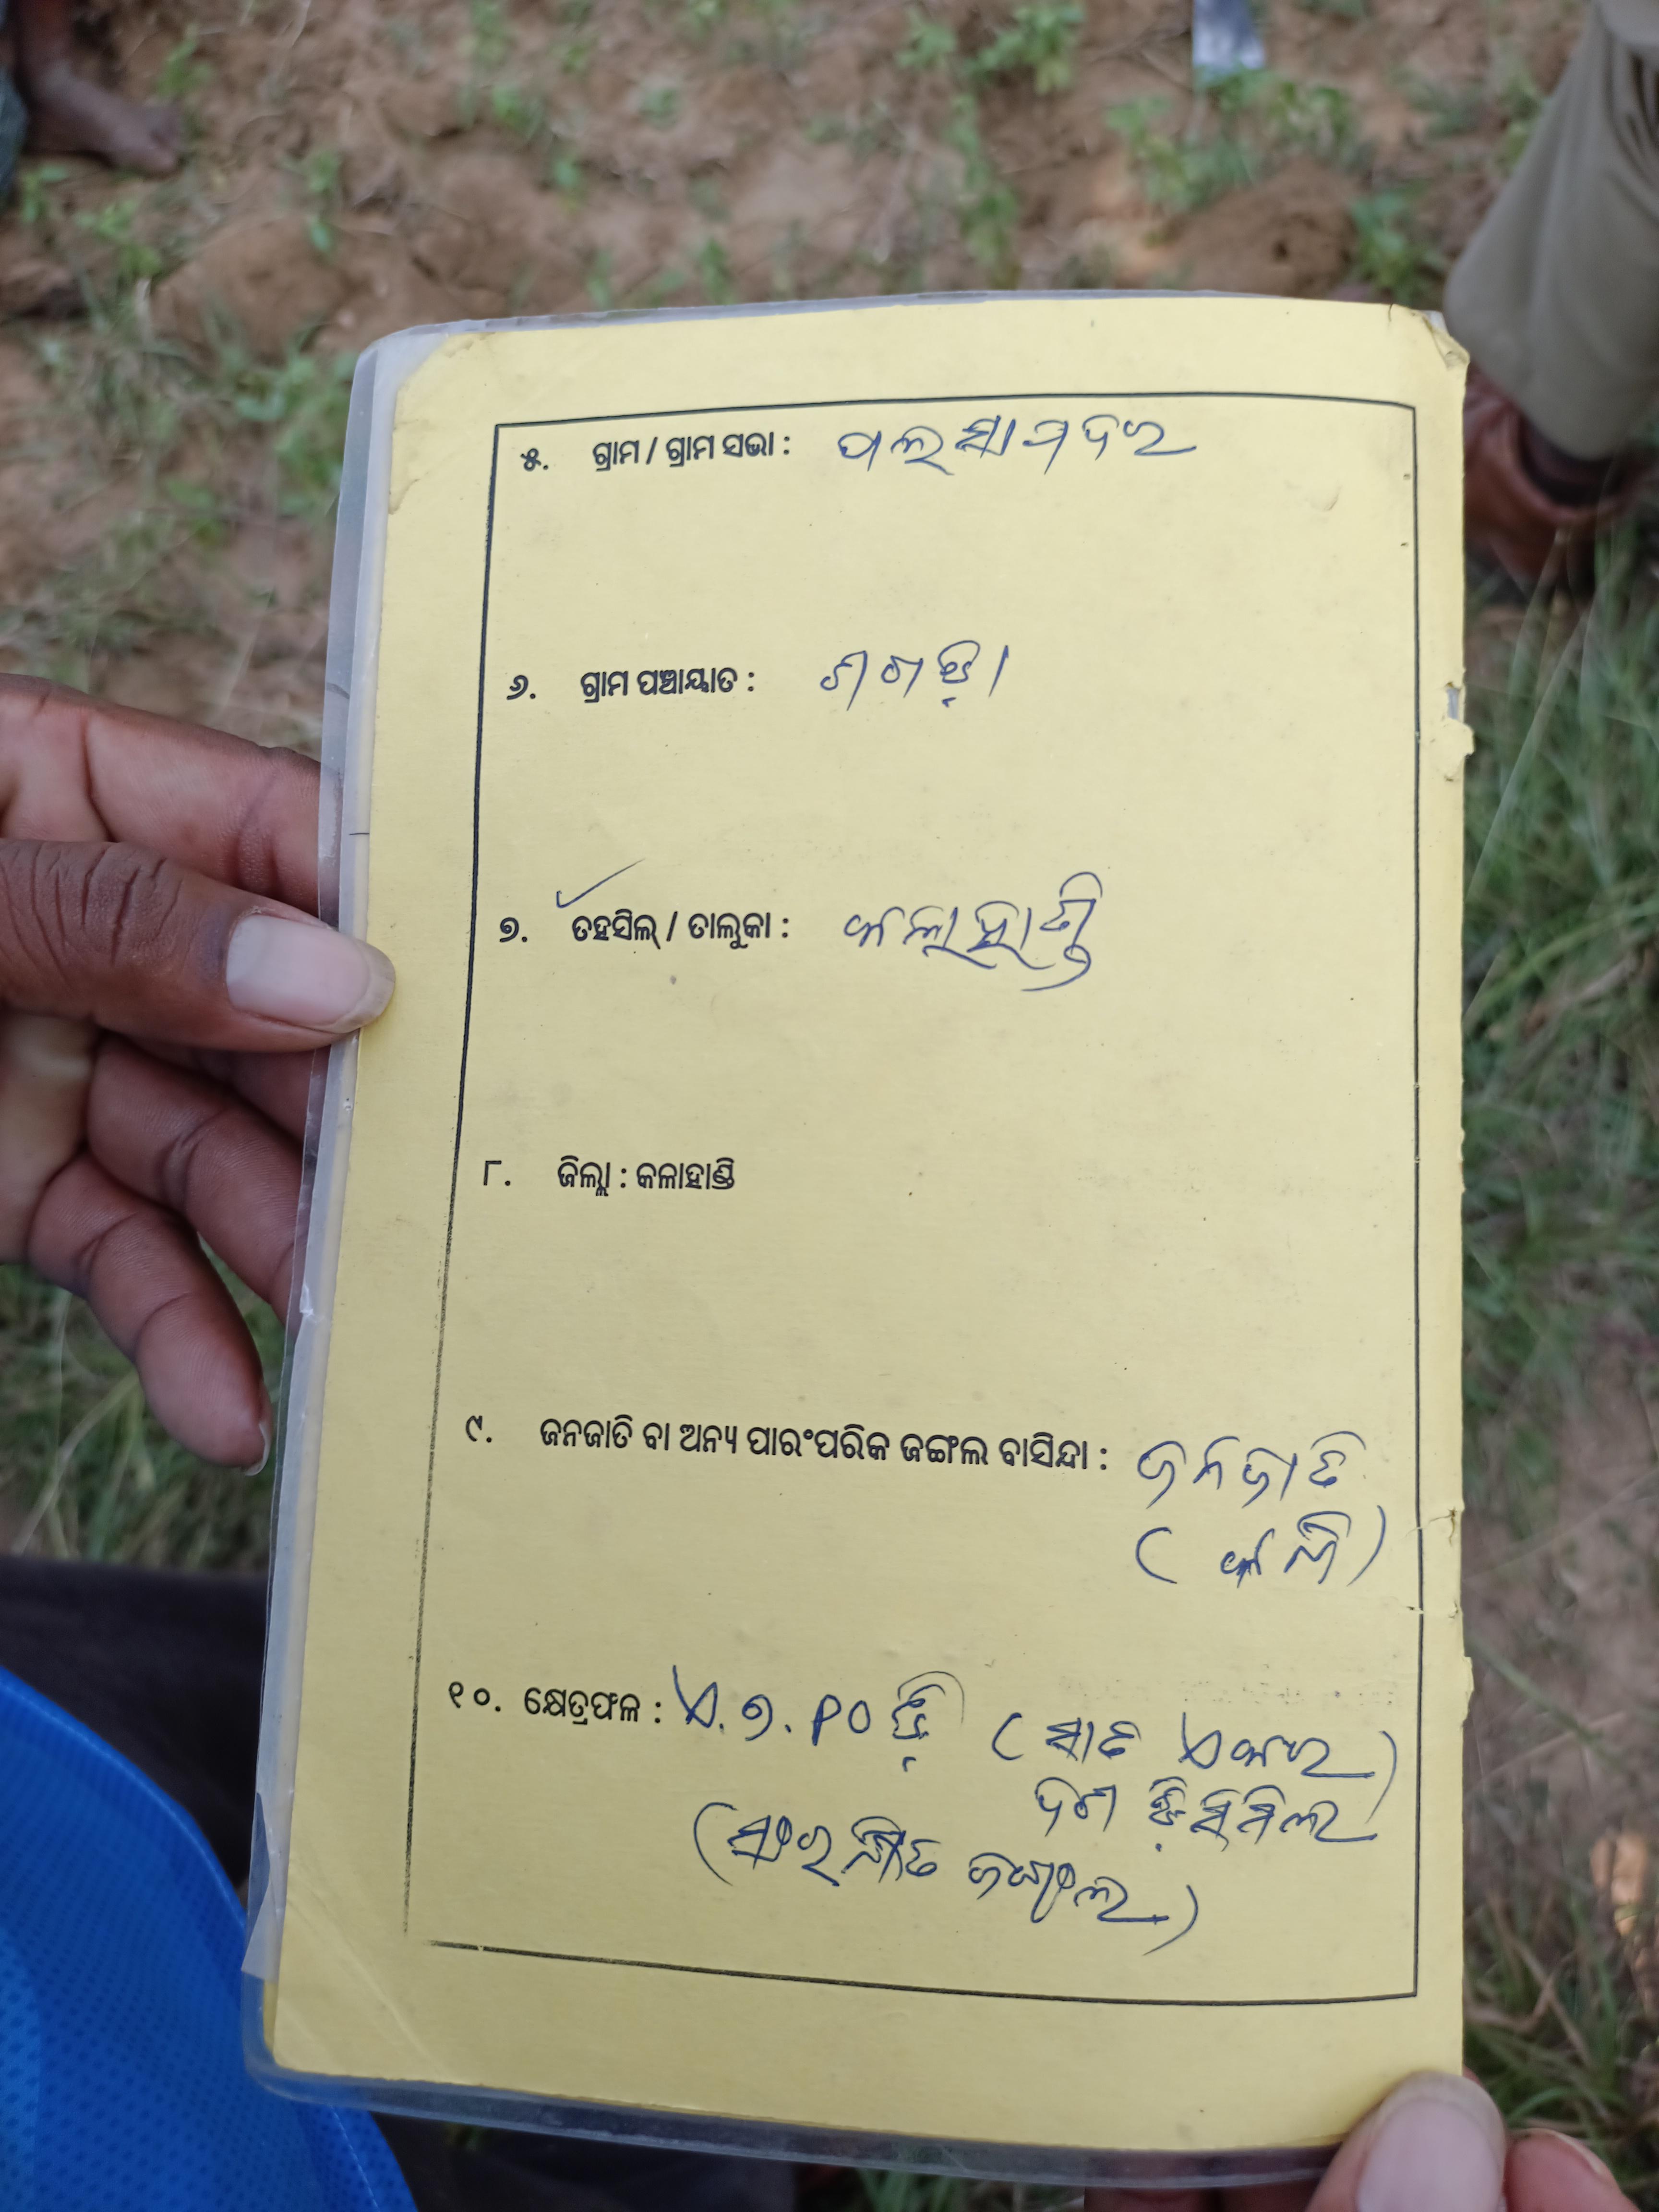 ୫. ଗ୍ରାମ / ଗ୍ରାମ ସଭା : ପଲସାପଦର
୬. ଗ୍ରାମ ପଞ୍ଚାୟାତ :
୭. ତହସିଲ୍ / ତାଲୁକା : କଳାହାଣ୍ଡି
୮. ଜିଲ୍ଲା : କଳାହାଣ୍ଡି
୯. ଜନଜାତି ବା ଅନ୍ୟ ପାରଂପରିକ ଜଙ୍ଗଲ ବାସିନ୍ଦା : ଜନଜାତି
୧୦. କ୍ଷେତ୍ରଫଳ : ଏ.୭.୧୦ ଡ଼ି (ସାତ ଏକର
ଦଶ ଡ଼ିସିମିଲ)
(ସଂରକ୍ଷିତ ଜଙ୍ଗଲ)